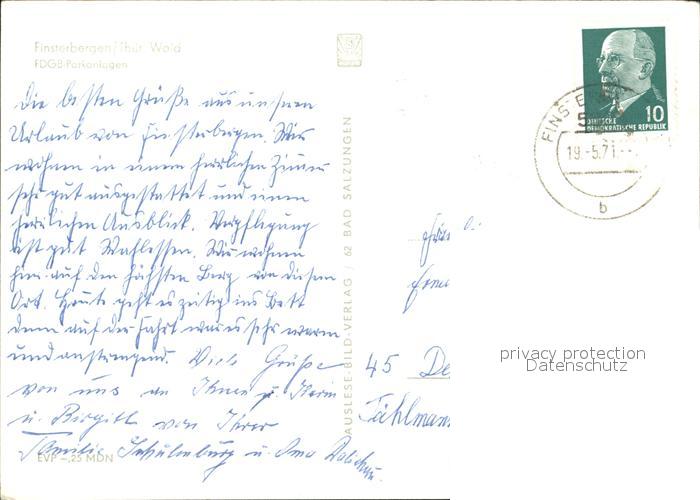 Finsterbergen/Thür. Wald
FDGB-Parkanlagen
Die besten Grüße aus unserem
Urlaub von Finsterbergen. Wir
wohnen in einem herrlichen Zimmer
sehr gut ausgestattet und einen
herrlichen Ausblick. Verpflegung
ist gut Wahlessen. Wir wohnen
hier auf den höchsten Berg von diesem
Ort. Heute geht es zeitig ins Bett
denn auf der Fahrt war es sehr warm
und anstrengend. Viele Grüße
von uns an Ihnen
u. Birgitt von Ihrer
Familie Schulenburg u. Oma
EVP -,25 MDN
AUSLESE-BILD-VERLAG / 62 BAD SALZUNGEN
DEUTSCHE
DEMOKRATISCHE REPUBLIK
10
FINSTE
19.-5.71.--
b
45 De
privacy protection
Datenschutz